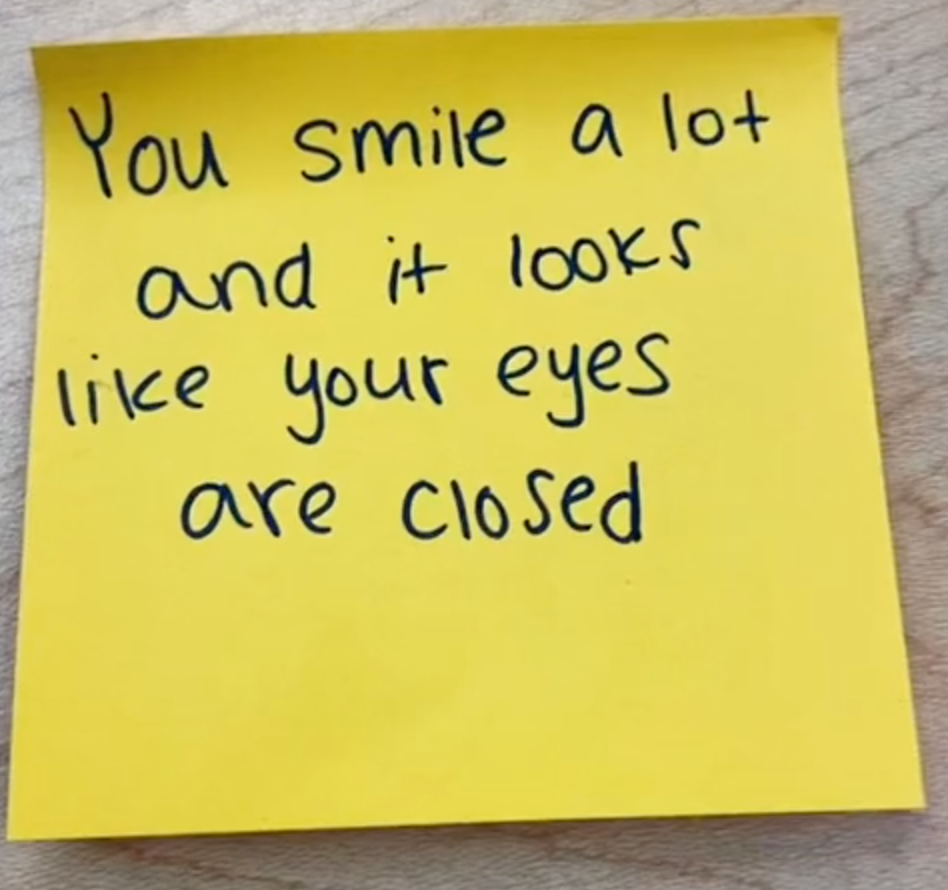 You smile a lot
and it looks
like your eyes
are closed